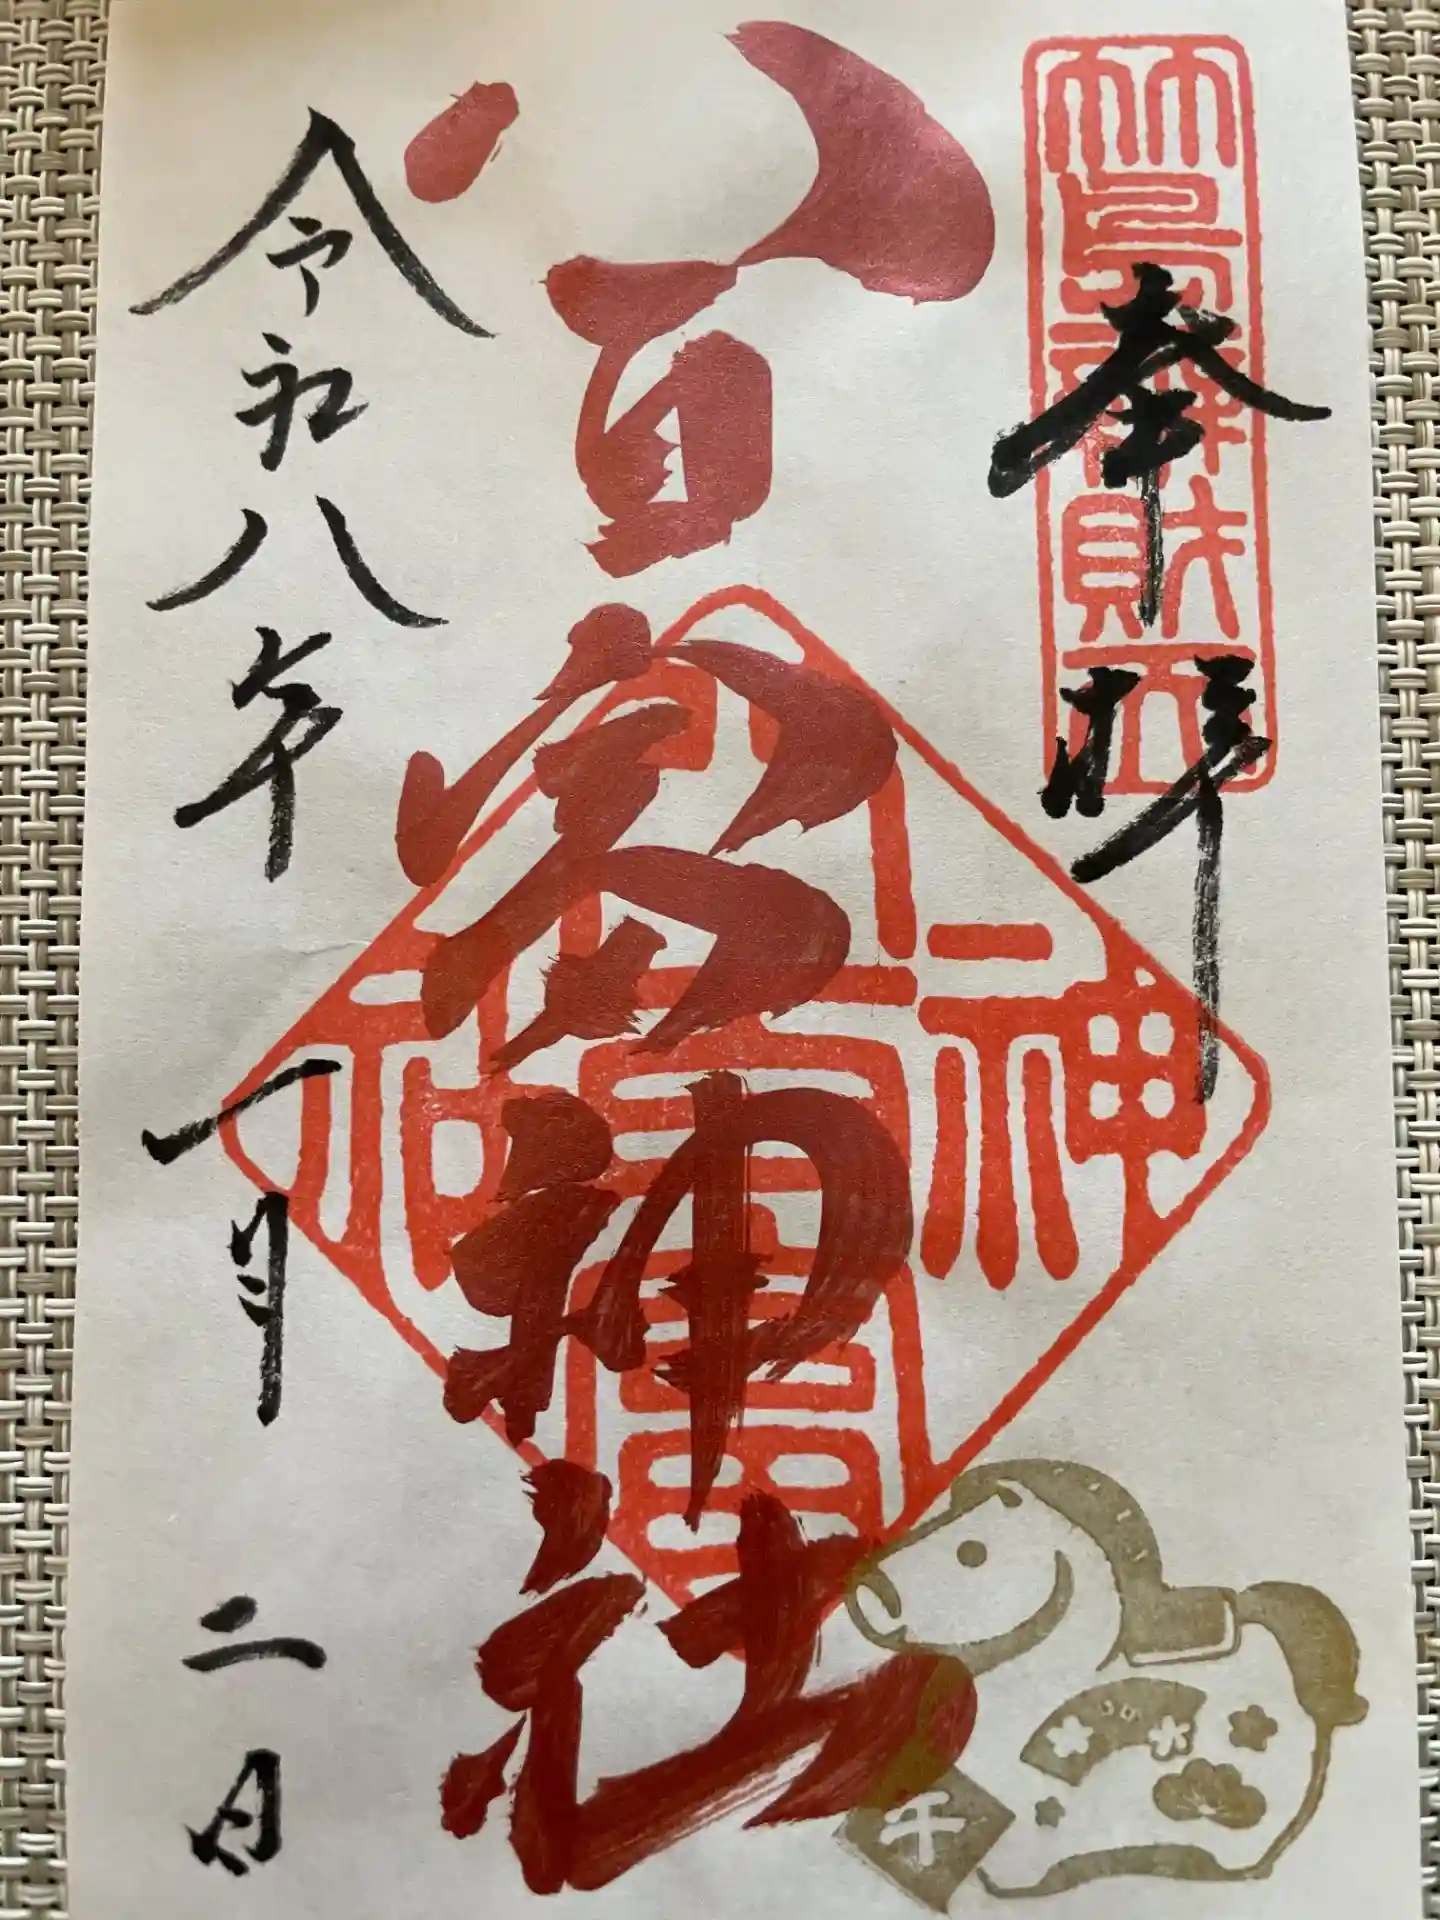 奉拝
竹島辨財天
八百富神社
八百富神社
令和八年一月二日
午